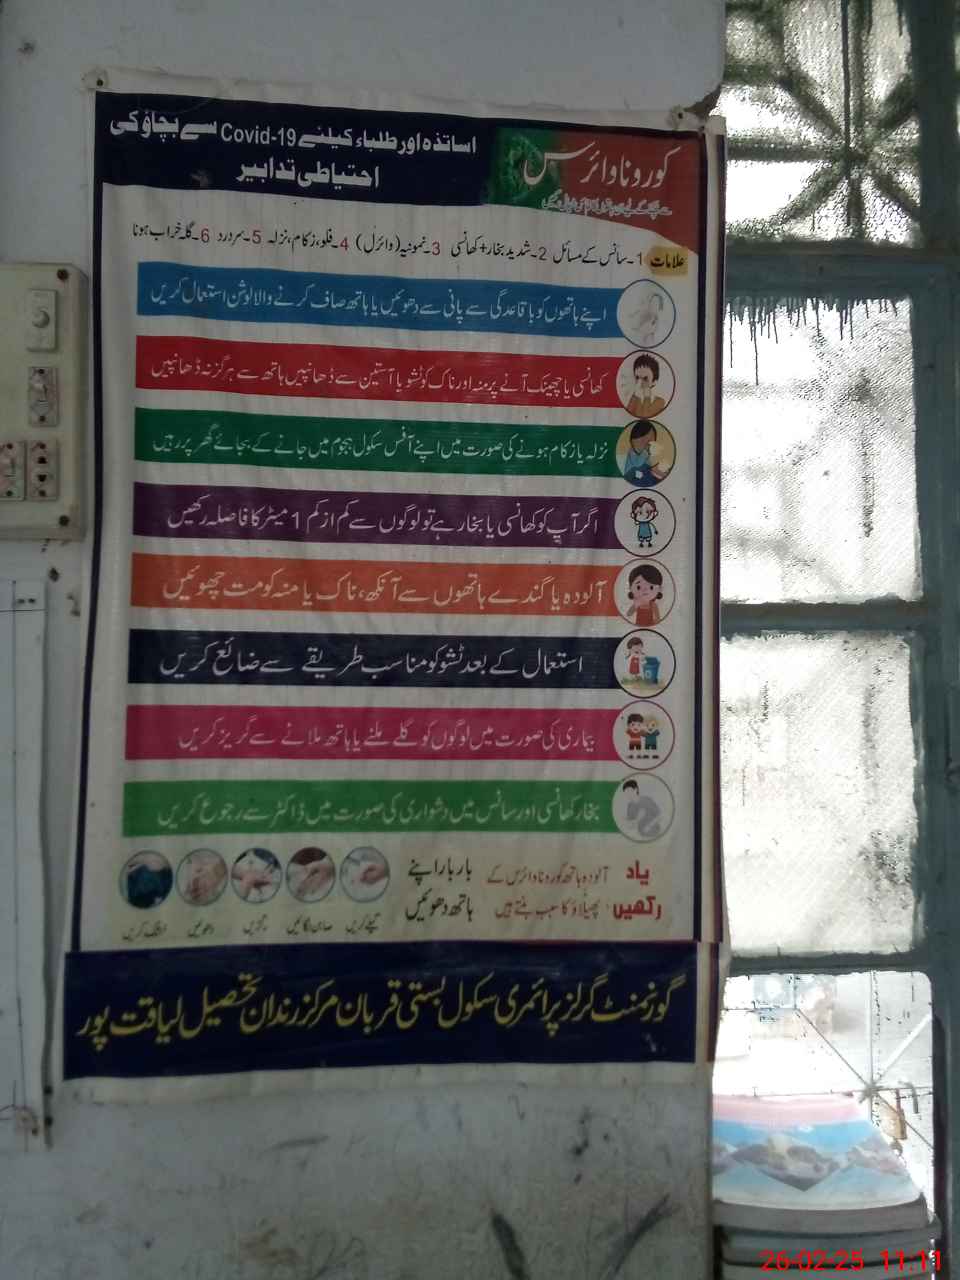 کورونا وائرس
اساتذہ اور طلباء کیلئے Covid-19 سے بچاؤ کی
احتیاطی تدابیر
علامات 1۔سانس کے مسائل 2۔شدید بخار+کھانسی 3۔نمونیہ (وائرل) 4۔فلو، زکام، نزلہ 5۔سردرد 6۔گلہ خراب ہونا
اپنے ہاتھوں کو باقاعدگی سے پانی سے دھوئیں یا ہاتھ صاف کرنے والا لوشن استعمال کریں
کھانسی یا چھینک آنے پر منہ اور ناک کو ٹشو یا آستین سے ڈھانپیں ہاتھ سے ہرگز نہ ڈھانپیں
نزلہ یا زکام ہونے کی صورت میں اپنے آفس سکول ہجوم میں جانے کے بجائے گھر پر رہیں
اگر آپ کو کھانسی یا بخار ہے تو لوگوں سے کم از کم 1 میٹر کا فاصلہ رکھیں
آلودہ یا گندے ہاتھوں سے آنکھ، ناک یا منہ کو مت چھوئیں
استعمال کے بعد ٹشو کو مناسب طریقے سے ضائع کریں
بیماری کی صورت میں لوگوں کو گلے ملنے یا ہاتھ ملانے سے گریز کریں
بخار کھانسی اور سانس میں دشواری کی صورت میں ڈاکٹر سے رجوع کریں
یاد رکھیں
آلودہ ہاتھ کورونا وائرس کے
پھیلاؤ کا سبب بنتے ہیں
بار بار اپنے
ہاتھ دھوئیں
گیلے کریں صابن لگائیں رگڑیں دھوئیں خشک کریں
گورنمنٹ گرلز پرائمری سکول بستی قربان مرکز رندان تحصیل لیاقت پور
26-02-25 11:11